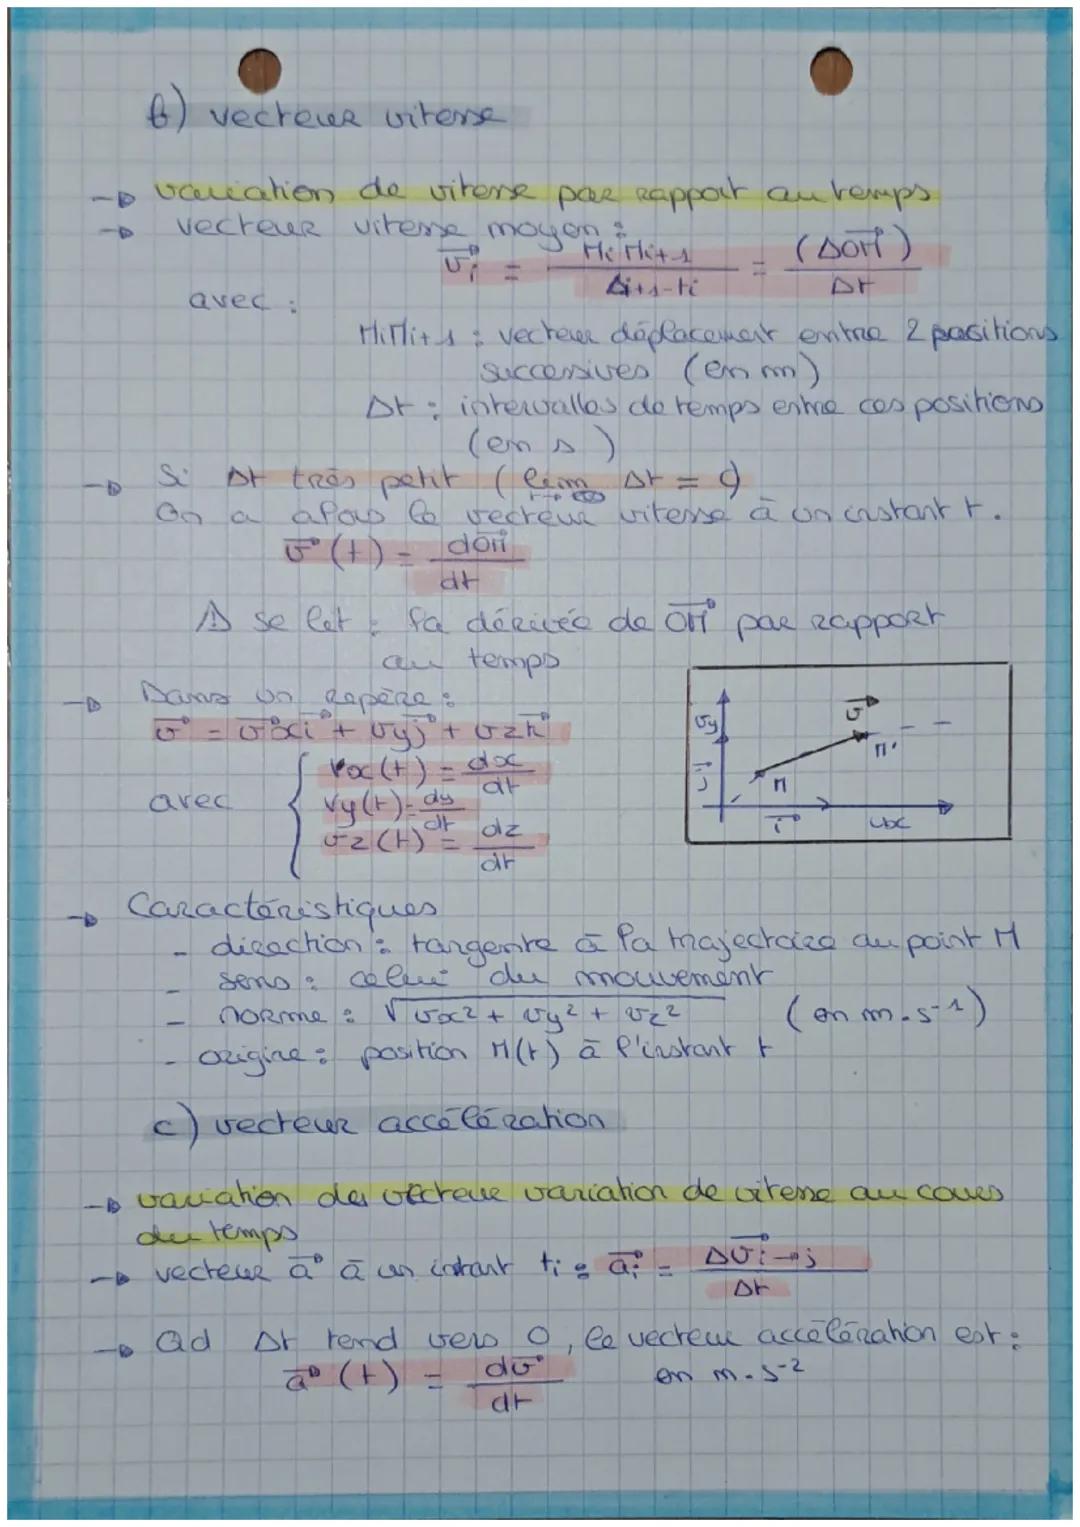 b) vecteur vitesse
→ variation de vitesse par rapport au temps
→ vecteur vitesse moyen :
v⃗i = MiMi+1 / Δi+1-ti = (ΔOM⃗) / Δt
avec :
MiMi+1 : vecteur déplacement entre 2 positions
successives (en m)
Δt : intervalles de temps entre ces positions
(en s)
→ Si Δt très petit (lim Δt = 0)
t→∞
On a alors le vecteur vitesse à un instant t.
v⃗(t) = dOM⃗ / dt
⚠ se lit : la dérivée de OM⃗ par rapport
au temps
→ Dans un repère :
v⃗ = v⃗xi⃗ + vyj⃗ + vzk⃗
avec { vx(t) = dx/dt
vy(t) = dy/dt
vz(t) = dz/dt
vy v⃗
M'
j M
i⃗ vx
→ Caractéristiques
- direction : tangente à la trajectoire au point M
- sens : celui du mouvement
- norme : √vx² + vy² + vz² (en m.s⁻¹)
- origine : position M(t) à l'instant t
c) vecteur accélération
→ variation du vecteur variation de vitesse au cours
du temps
→ vecteur a⃗ à un instant ti : a⃗i = Δv⃗i→j / Δt
→ Qd Δt tend vers 0, le vecteur accélération est :
a⃗(t) = dv⃗ / dt en m.s⁻²